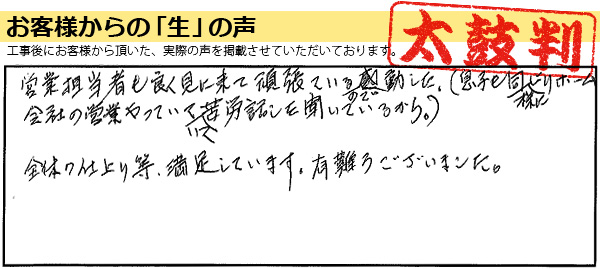 お客様からの「生」の声
工事後にお客様から頂いた、実際の声を掲載させていただいております。
太鼓判
営業担当者も良く見に来て頑張っているので感動した。(息子も同じ様にリホーム
会社の営業やっていて苦労話を聞いているから。)
全体の仕上り等、満足しています。有難うございました。